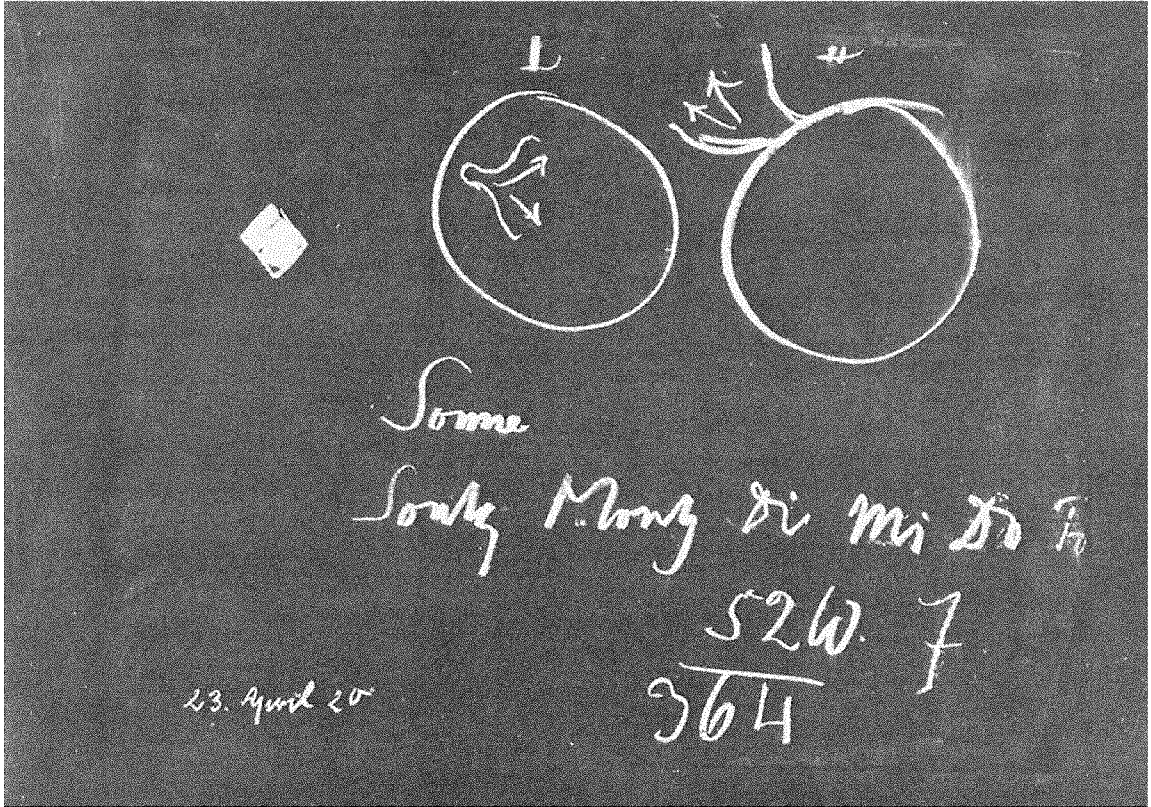 I II
Sonne
Sontg Montg Di Mi Do Fr
52 W. 7
364
23. April 20